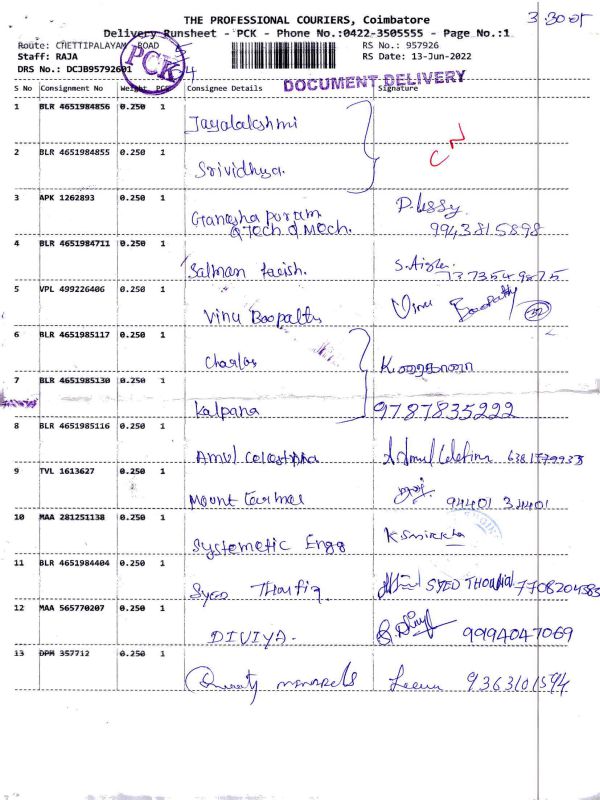 3-30
THE PROFESSIONAL COURIERS, Coimbatore
Delivery Runsheet - PCK - Phone No.:0422-3505555 - Page No.:1
Route: CHETTIPALAYAM ROAD RS No.: 957926
Staff: RAJA RS Date: 13-Jun-2022
DRS No.: DCJB95792601
PCK
DOCUMENT DELIVERY
S No Consignment No Weight PCS Consignee Details Signature
1 BLR 4651984856 0.250 1 Jayalakshmi
CN
2 BLR 4651984855 0.250 1 Srividhya.
3 APK 1262893 0.250 1 Ganesha puram P. Lessy
9943815898
4 BLR 4651984711 0.250 1 Salman
5 VPL 499226406 0.250 1 Vinu Boopathy Vinu Boopathy
6 BLR 4651985117 0.250 1 Charles
7 BLR 4651985130 0.250 1 Kalpana 9787835222
8 BLR 4651985116 0.250 1 Amul
9 TVL 1613627 0.250 1 Mount
10 MAA 281251138 0.250 1 Systemetic Engg
11 BLR 4651984404 0.250 1 Syed SYED 7708204383
12 MAA 565770207 0.250 1 DIVIYA. 9994047069
13 DPM 357712 0.250 1 Leena 9363101594